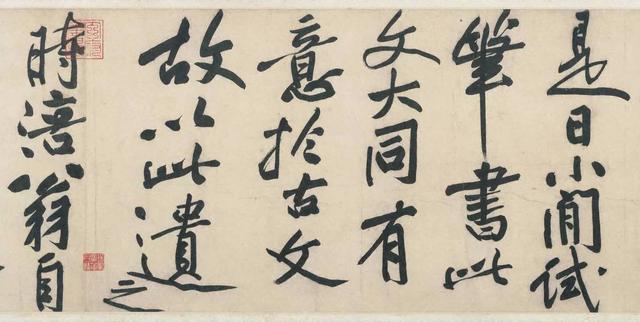 是日小閒試
筆書此
文大同有
意於古文
故以此遺之
時涪翁自